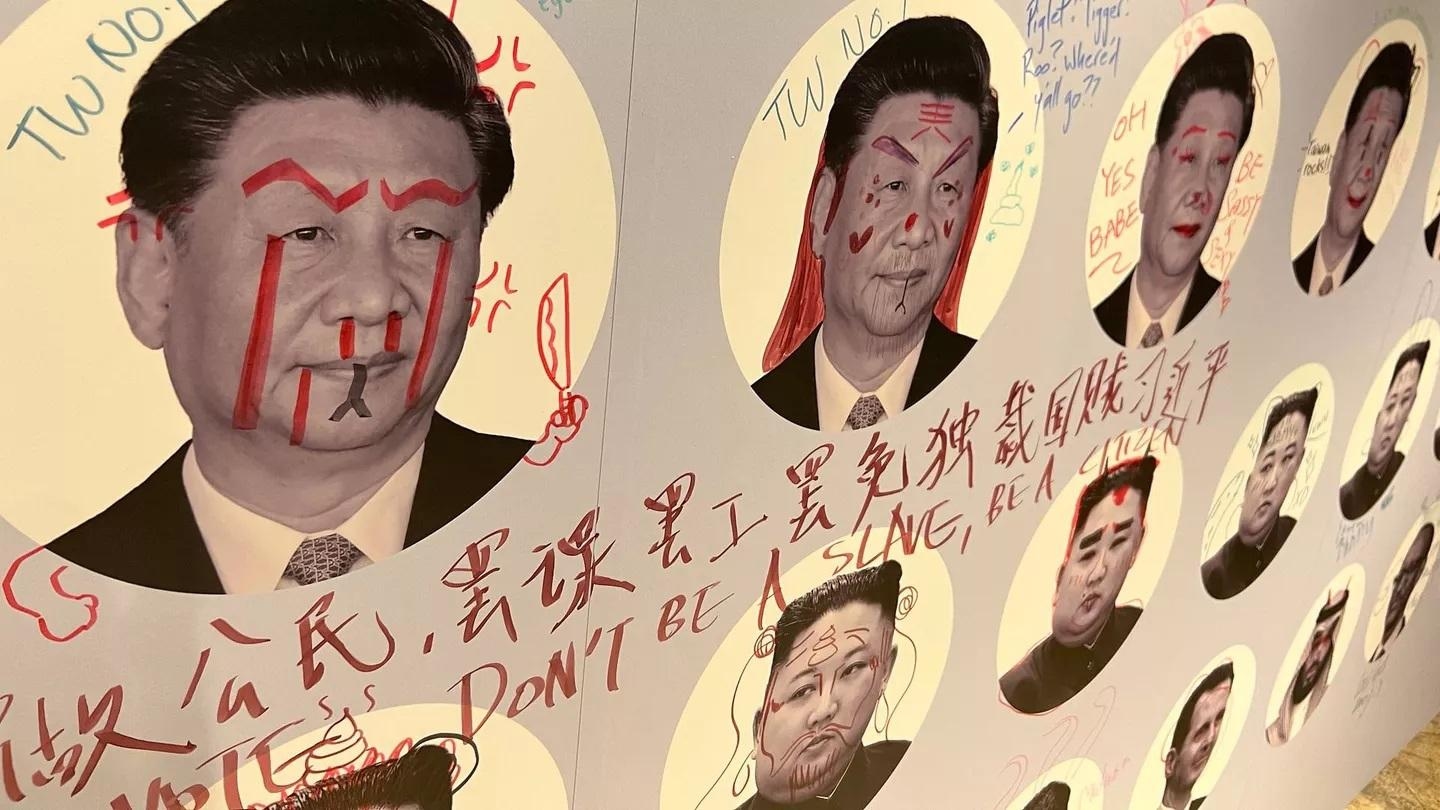 TW NO.1
TW NO.1
Piglet? Tigger?
Roo? Where'd
y'all go??
OH
YES
BABE
BE
SASSY
TAIWAN
ROCKS!!
做公民,罢课罢工罢免独裁国贼习近平
VOTE
DON'T BE A SLAVE, BE A CITIZEN